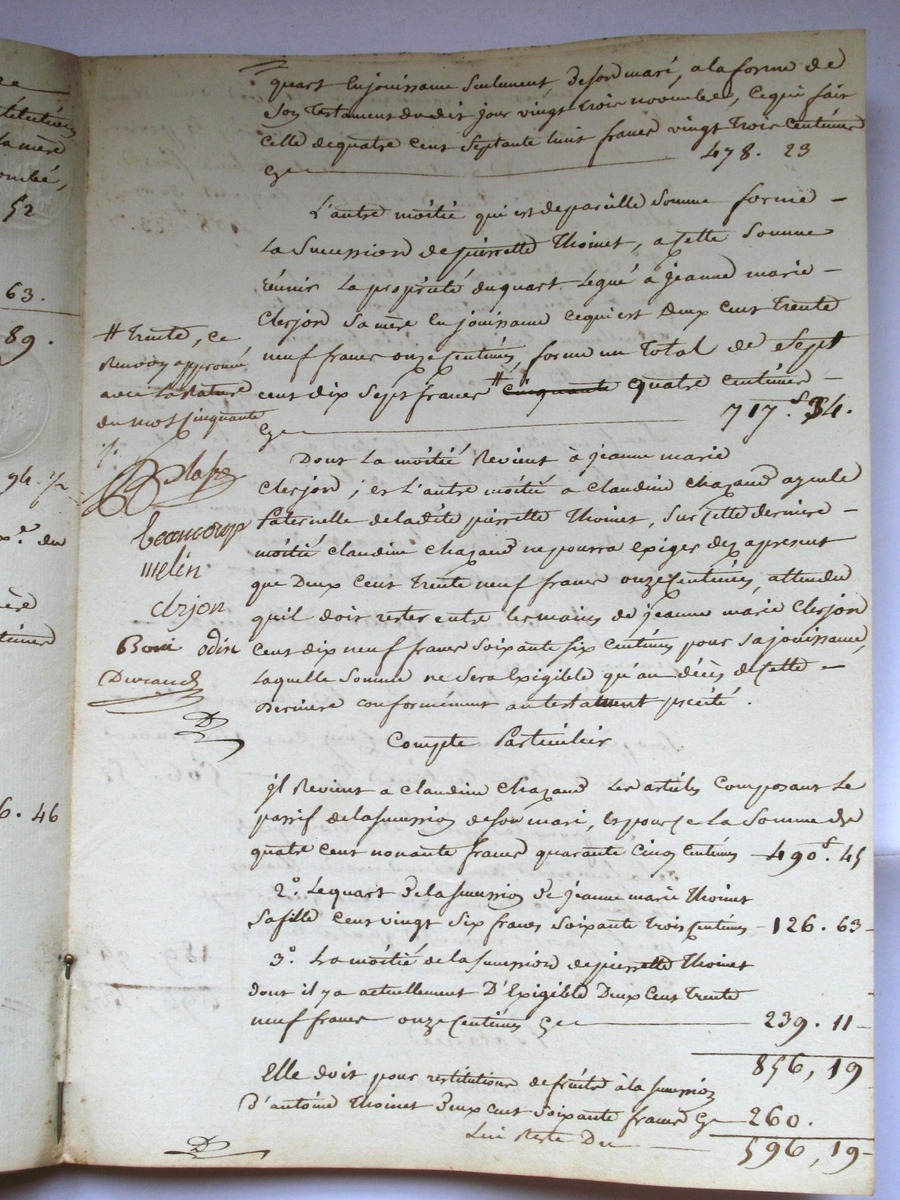 quart En jouissance seulement de son mari, a la forme de
son testament du dit jour vingt trois novembre, ce qui fait
celle de quatre cent septante huit francs vingt trois centimes
cy 478. 23
L'autre moitié qui est de pareille somme forme
La Sucession de pierrette Thoinet, a cette Somme
réunir La propriété du quart Legué à jeanne marie
Clerjon sa mère En jouissance ce qui est Deux cent Trente
neuf francs onze Centimes, forme un Total de Sept
cent dix Sept francs # cinquante quatre centimes
cy 717.f 34.
Dont La moitié Revient à jeanne marie
Clerjon ; et L'autre moitié a Claudine Chazaud ayeule
Paternelle de la dite pierrette Thoinet, Sur cette derniere
moitié Claudine Chazaud ne pourra exiger dez apresent
que Deux Cent Trente neuf francs onze Centimes, attendu
qu'il doit rester entre les mains de jeanne marie Clerjon
Cent dix neuf francs Soixante Six Centimes pour sa jouissance,
Laquelle Somme ne Sera Exigible qu'au décès de cette
Derniere conformément au testament précité.
Compte Particulier
il Revient a Claudine Chazaud Les articles Composant Le
passif de la sucession de son mari, et pour ce La Somme de
quatre cent nonante francs quarante Cinq Centimes 490f. 45
2°. Le quart De la sucession De jeanne marie Thoinet
sa fille Cent vingt Six francs Soixante Trois Centimes 126. 63
3°. La moitié de la sucession de pierrette Thoinet
dont il y a actuellement D'Exigible Deux Cent Trente
neuf francs onze Centimes cy 239. 11
856, 19
Elle doit pour restitutions de fruits à la sucession
D'antoine Thoinet Deux cent Soixante francs cy 260.
Lui reste Du 596, 19
# Trente, ce
Renvoy approuvé
avec La Rature
du mot Cinquante
Beaucoup
melin
clerjon
Boni odin
Durand
52
63.
89.
94.
6. 46